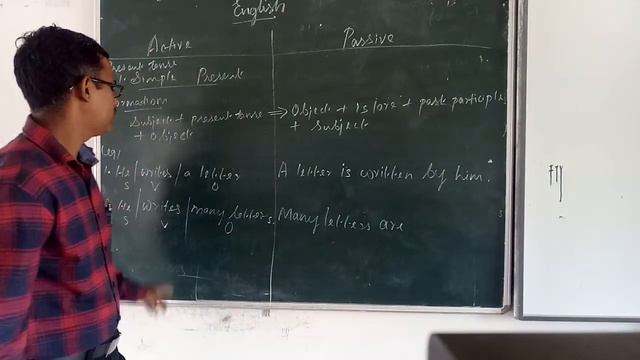 English
Active Passive
Present tense
Simple Present
Formation
Subject + present tense ⇒ Object + is/are + past participle
+ Object + Subject
eg,
1. He / writes / a letter A letter is written by him.
S V O
He / writes / many letters. Many letters are
S V O